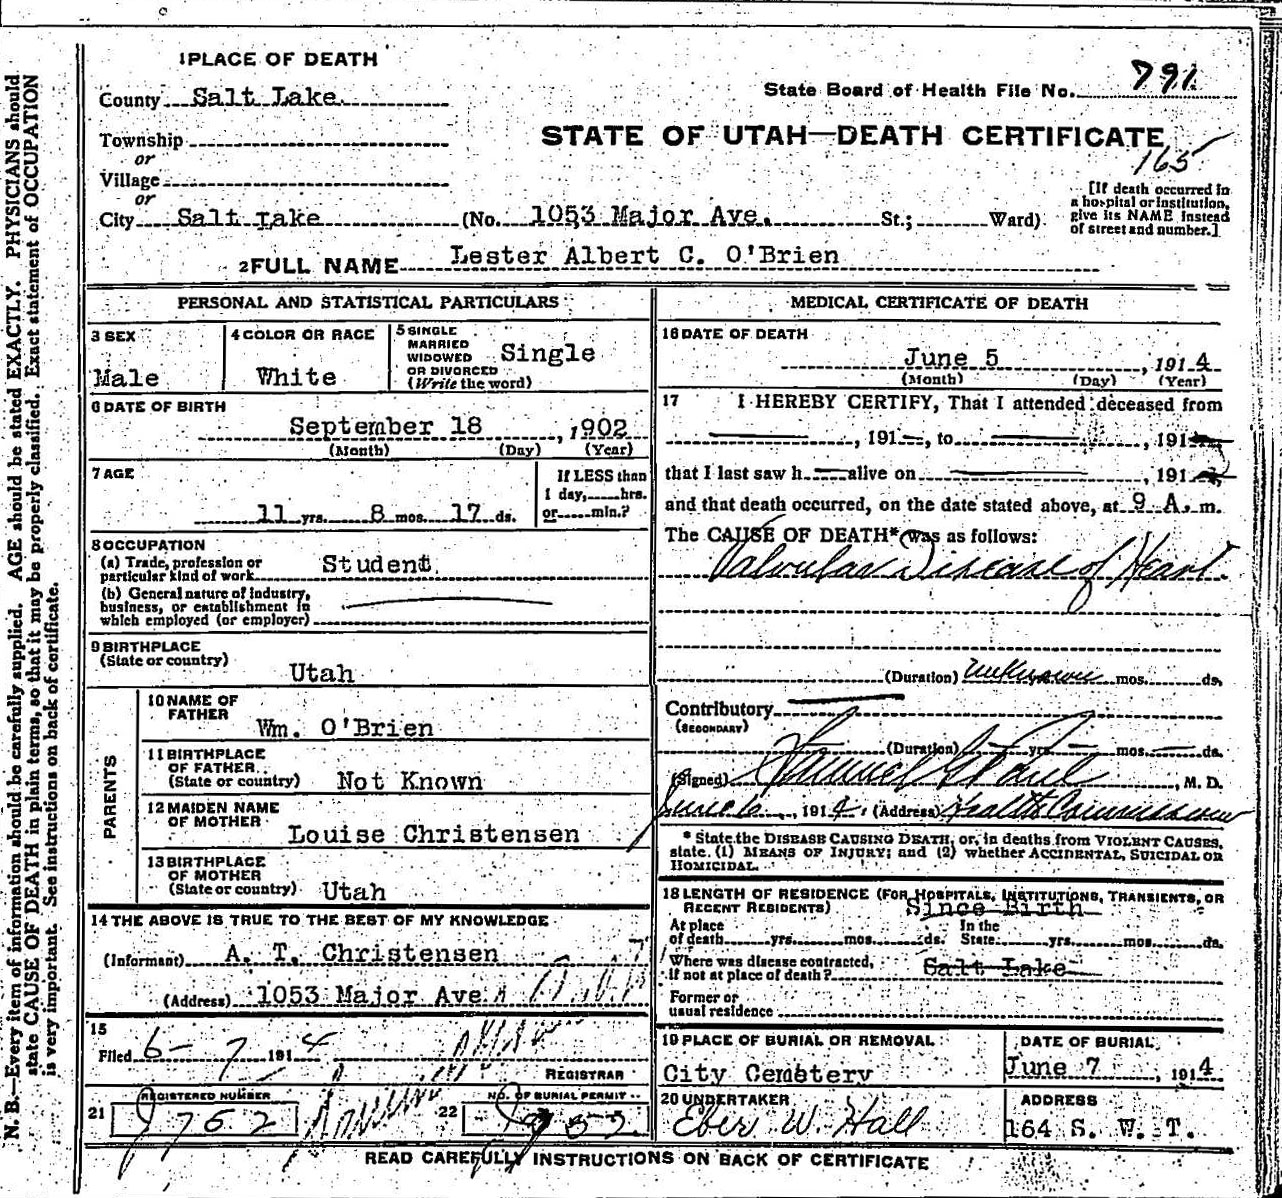 1 PLACE OF DEATH
County Salt Lake
State Board of Health File No. 791
Township
STATE OF UTAH—DEATH CERTIFICATE
or
165
Village
or
City Salt Lake (No. 1053 Major Ave. St.; Ward)
[If death occurred in a hospital or institution, give its NAME instead of street and number.]
2 FULL NAME Lester Albert C. O'Brien
PERSONAL AND STATISTICAL PARTICULARS
3 SEX
Male
4 COLOR OR RACE
White
5 SINGLE
MARRIED
WIDOWED
OR DIVORCED
(Write the word)
Single
6 DATE OF BIRTH
September 18, 1902
(Month) (Day) (Year)
7 AGE
11 yrs. 8 mos. 17 ds.
If LESS than
1 day, hrs.
or min.?
8 OCCUPATION
(a) Trade, profession or
particular kind of work Student
(b) General nature of industry,
business, or establishment in
which employed (or employer)
9 BIRTHPLACE
(State or country)
Utah
PARENTS
10 NAME OF
FATHER
Wm. O'Brien
11 BIRTHPLACE
OF FATHER
(State or country) Not Known
12 MAIDEN NAME
OF MOTHER
Louise Christensen
13 BIRTHPLACE
OF MOTHER
(State or country) Utah
14 THE ABOVE IS TRUE TO THE BEST OF MY KNOWLEDGE
(Informant) A. T. Christensen
(Address) 1053 Major Ave.
15
Filed 6-7 1914
REGISTRAR
REGISTERED NUMBER
21
NO. OF BURIAL PERMIT
22
MEDICAL CERTIFICATE OF DEATH
16 DATE OF DEATH
June 5, 1914
(Month) (Day) (Year)
17 I HEREBY CERTIFY, That I attended deceased from
, 191 , to , 191
that I last saw h alive on , 191
and that death occurred, on the date stated above, at 9 A. m.
The CAUSE OF DEATH* was as follows:
Valvular Disease of Heart.
(Duration) unknown mos. ds.
Contributory
(SECONDARY)
(Duration) yrs. mos. ds.
(Signed) Samuel G Paul, M. D.
June 6, 1914. (Address) Health Commissioner
* State the DISEASE CAUSING DEATH, or, in deaths from VIOLENT CAUSES,
state (1) MEANS OF INJURY; and (2) whether ACCIDENTAL, SUICIDAL OR
HOMICIDAL.
18 LENGTH OF RESIDENCE (FOR HOSPITALS, INSTITUTIONS, TRANSIENTS, OR
RECENT RESIDENTS) Since Birth
At place In the
of death yrs. mos. ds. State yrs. mos. ds.
Where was disease contracted,
if not at place of death? Salt Lake
Former or
usual residence
19 PLACE OF BURIAL OR REMOVAL
City Cemetery
DATE OF BURIAL
June 7, 1914
20 UNDERTAKER
Eber W. Hall
ADDRESS
164 S. W. T.
READ CAREFULLY INSTRUCTIONS ON BACK OF CERTIFICATE
N. B.—Every item of information should be carefully supplied. AGE should be stated EXACTLY. PHYSICIANS should
state CAUSE OF DEATH in plain terms, so that it may be properly classified. Exact statement of OCCUPATION
is very important. See instructions on back of certificate.